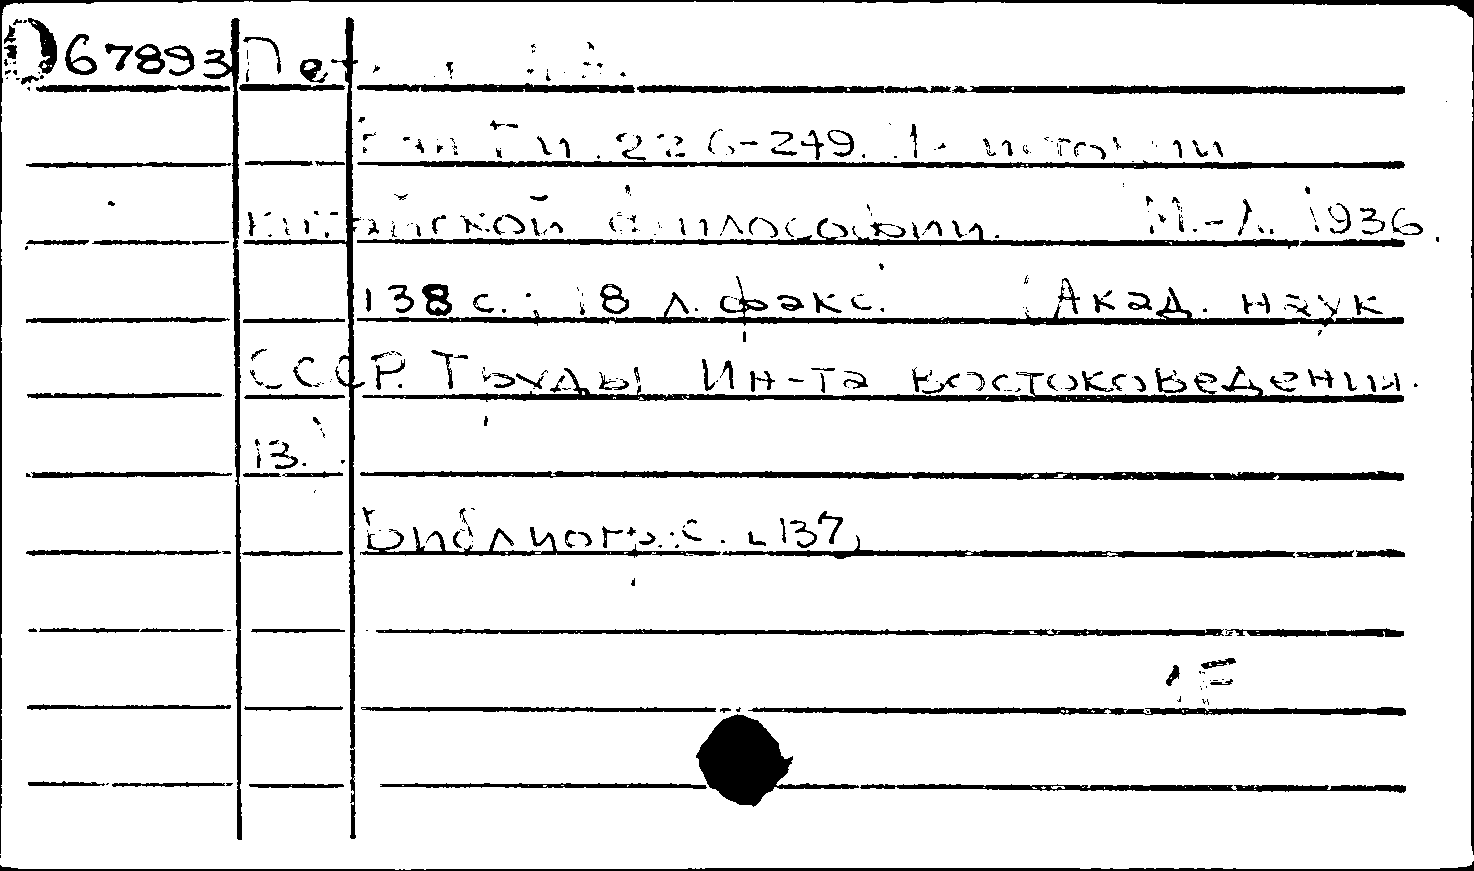 D67893
Би. 226-249. истории
китайской философии. М.-Л. 1936.
138 с.; 18 л. факс. (Акад. наук
СССР. Труды Ин-та востоковедения.
13.)
Библиогр.: с. [137]
1F